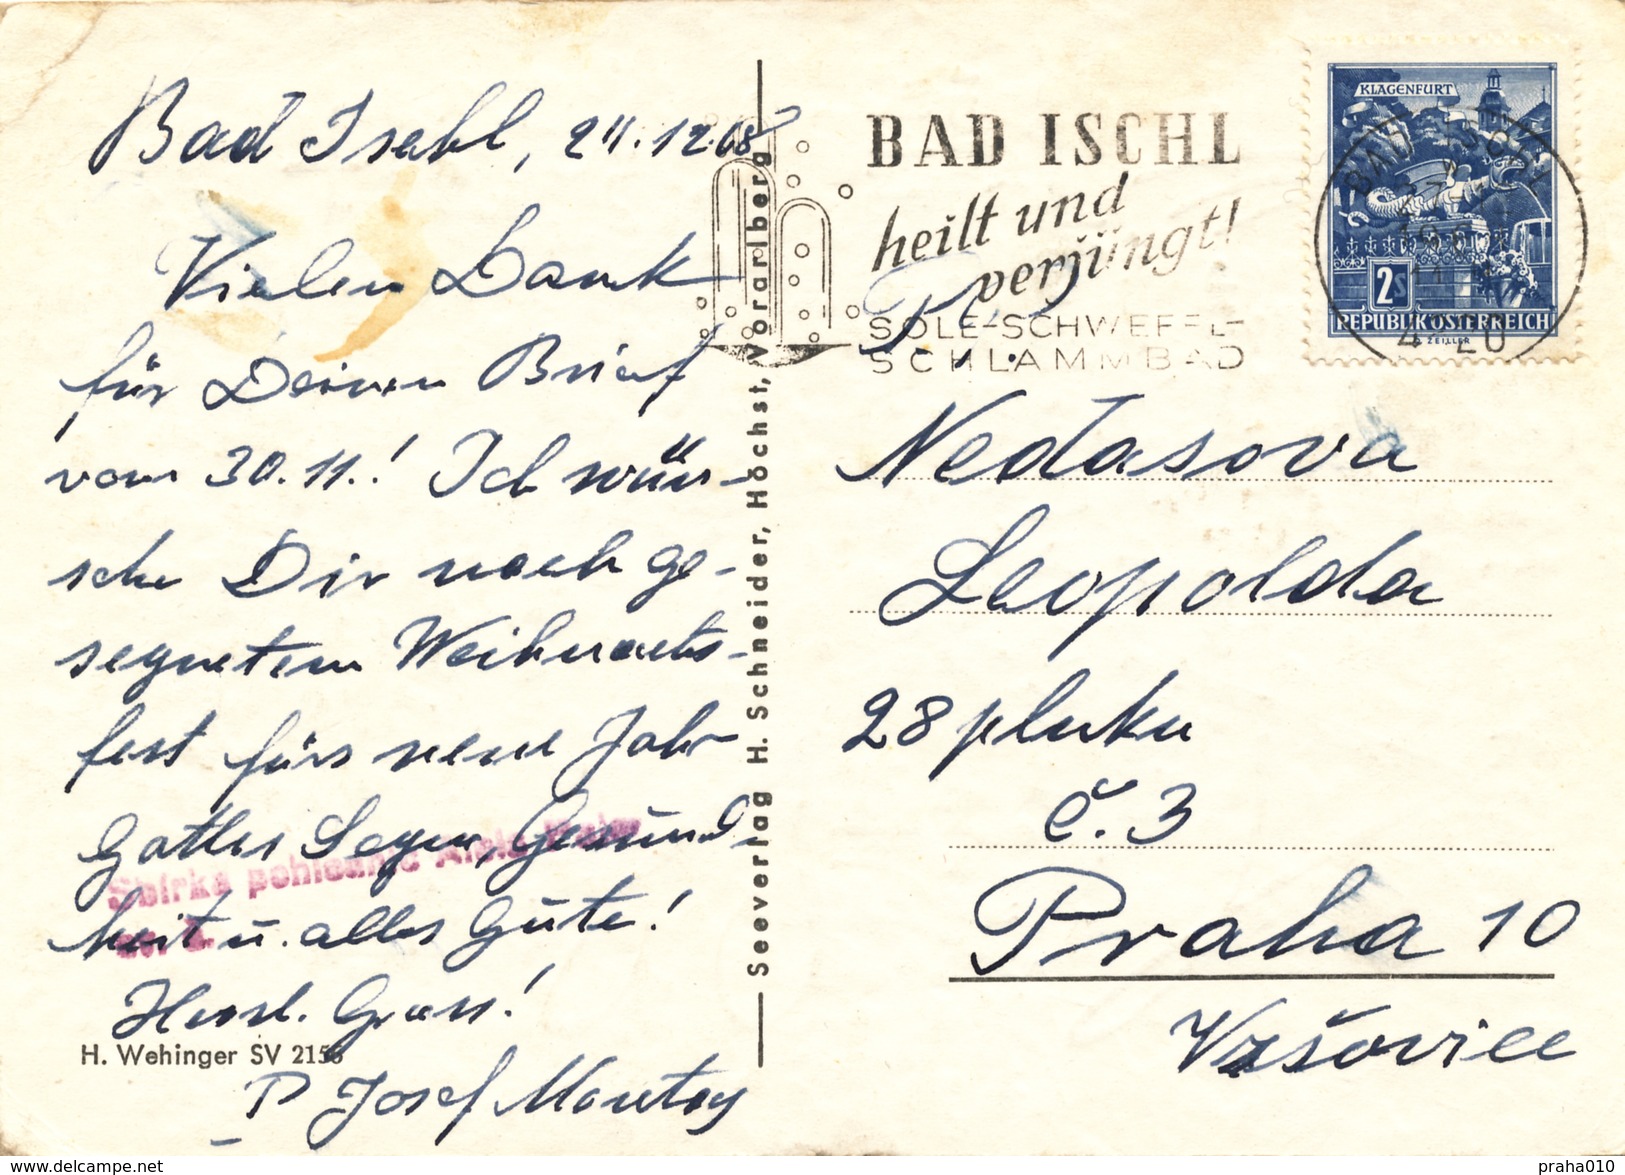 Bad Ischl, 24.12.68
Vielen Dank
für Deinen Brief
vom 30.11.! Ich wün-
sche Dir noch ge-
segnetem Weihnachts-
fest fürs neue Jahr
Gottes Segen, Gesund-
heit u. alles Gute!
Herzl. Gruss!
P Josef
H. Wehinger SV 2156
Sbírka pohlednic
Seeverlag H. Schneider, Höchst, Vorarlberg
BAD ISCHL
heilt und
verjüngt!
SOLE-SCHWEFEL-
SCHLAMMBAD
KLAGENFURT
2S
REPUBLIK ÖSTERREICH
ZEILLER
BAD ISCHL
4820
Nedasova
Leopolda
28 pluku
č. 3
Praha 10
Vršovice
delcampe.net
praha010